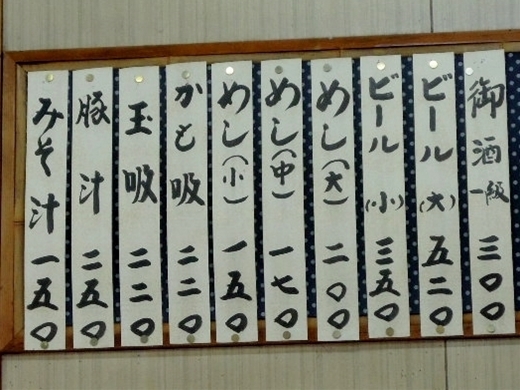 御酒一級 三〇〇
ビール(大) 五二〇
ビール(小) 三五〇
めし(大) 二〇〇
めし(中) 一七〇
めし(小) 一五〇
かも吸 二二〇
玉吸 二二〇
豚汁 二五〇
みそ汁 一五〇